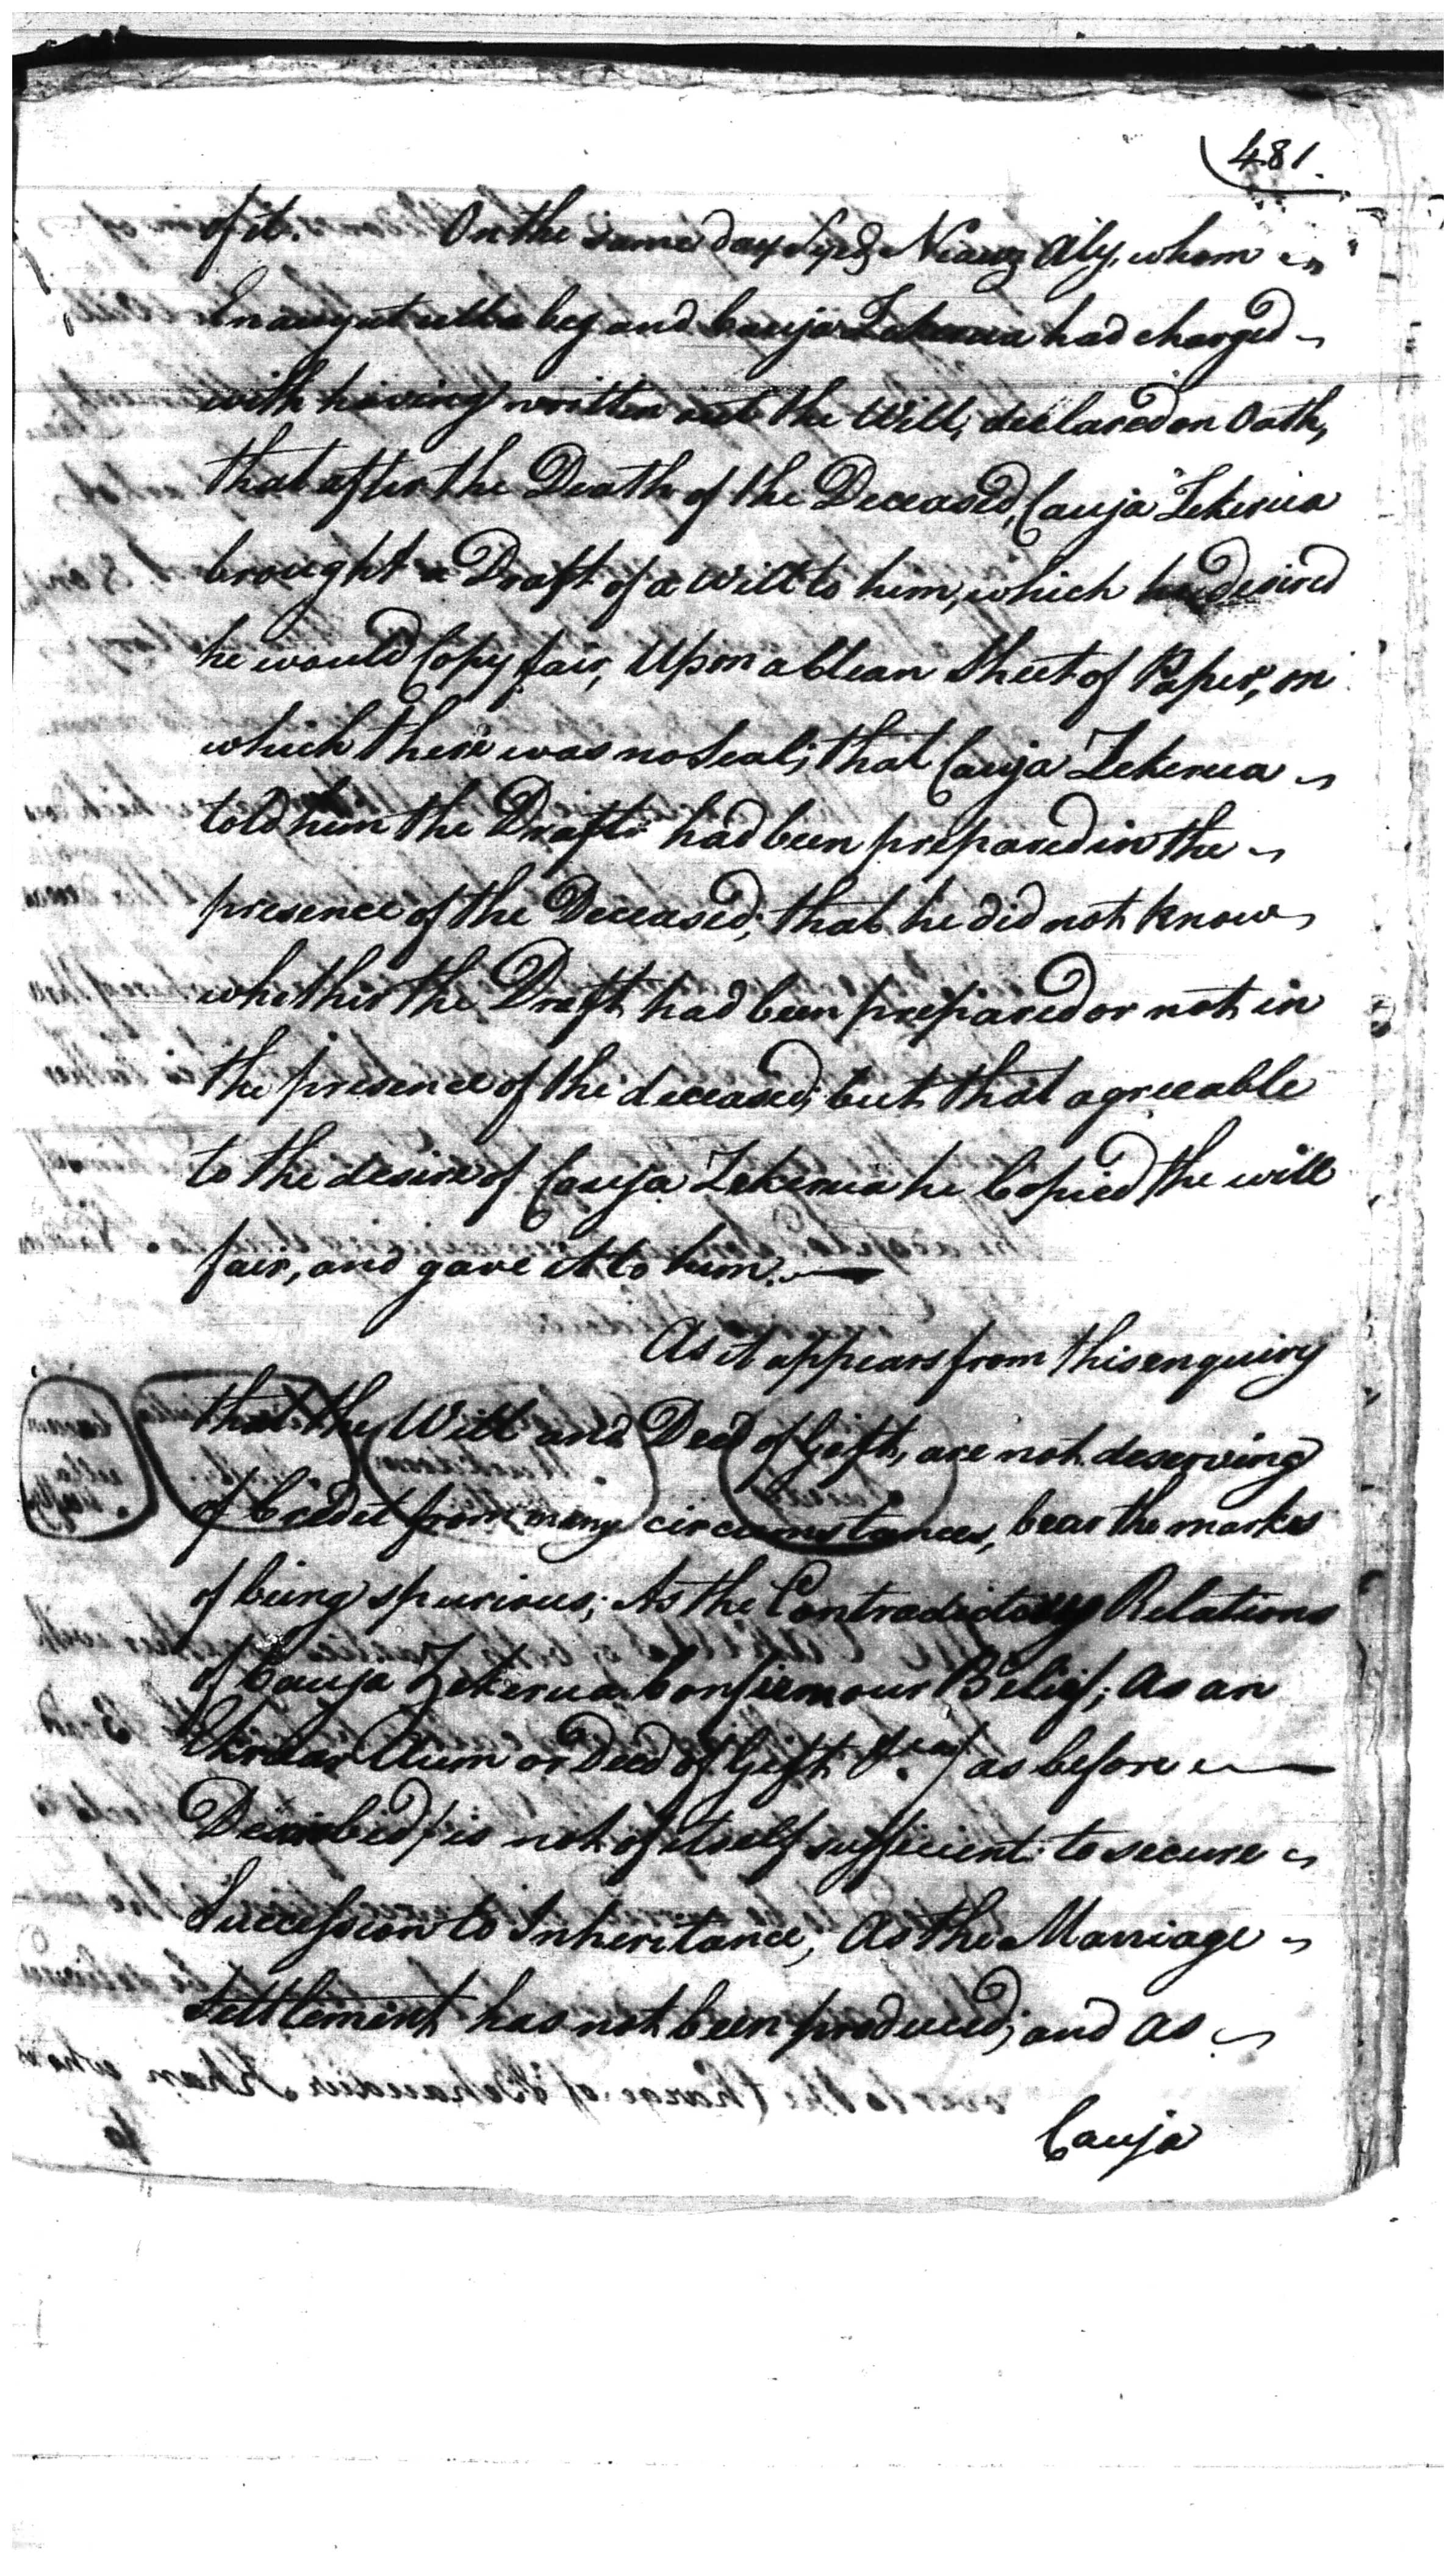 481.
of it. On the same day Syed Niauz Aly, whom
Enauyut ulla beg and Cauja Zekerua had charged
with having written out the Will, declared on Oath,
that after the Death of the Deceased, Cauja Zekerua
brought a Draft of a Will to him, which he desired
he would Copy fair, Upon a Clean Sheet of Paper, on
which there was no Seal; that Cauja Zekerua
told him the Draft had been prepared in the
presence of the Deceased; that he did not know
whether the Draft had been prepared or not in
the presence of the deceased; but that agreeable
to the desire of Cauja Zekerua he Copied the will
fair, and gave it to him.
As it appears from this enquiry
that the Will and Deed of Gift, are not deserving
of Credit from many circumstances, bear the marks
of being spurious; As the Contradictory Relations
of Cauja Zekerua Confirm our Belief; As an
Ekraar Aum or Deed of Gift (as before
Described) is not of itself sufficient to secure
Succession to Inheritance; As the Marriage
Settlement has not been produced; and as
Cauja